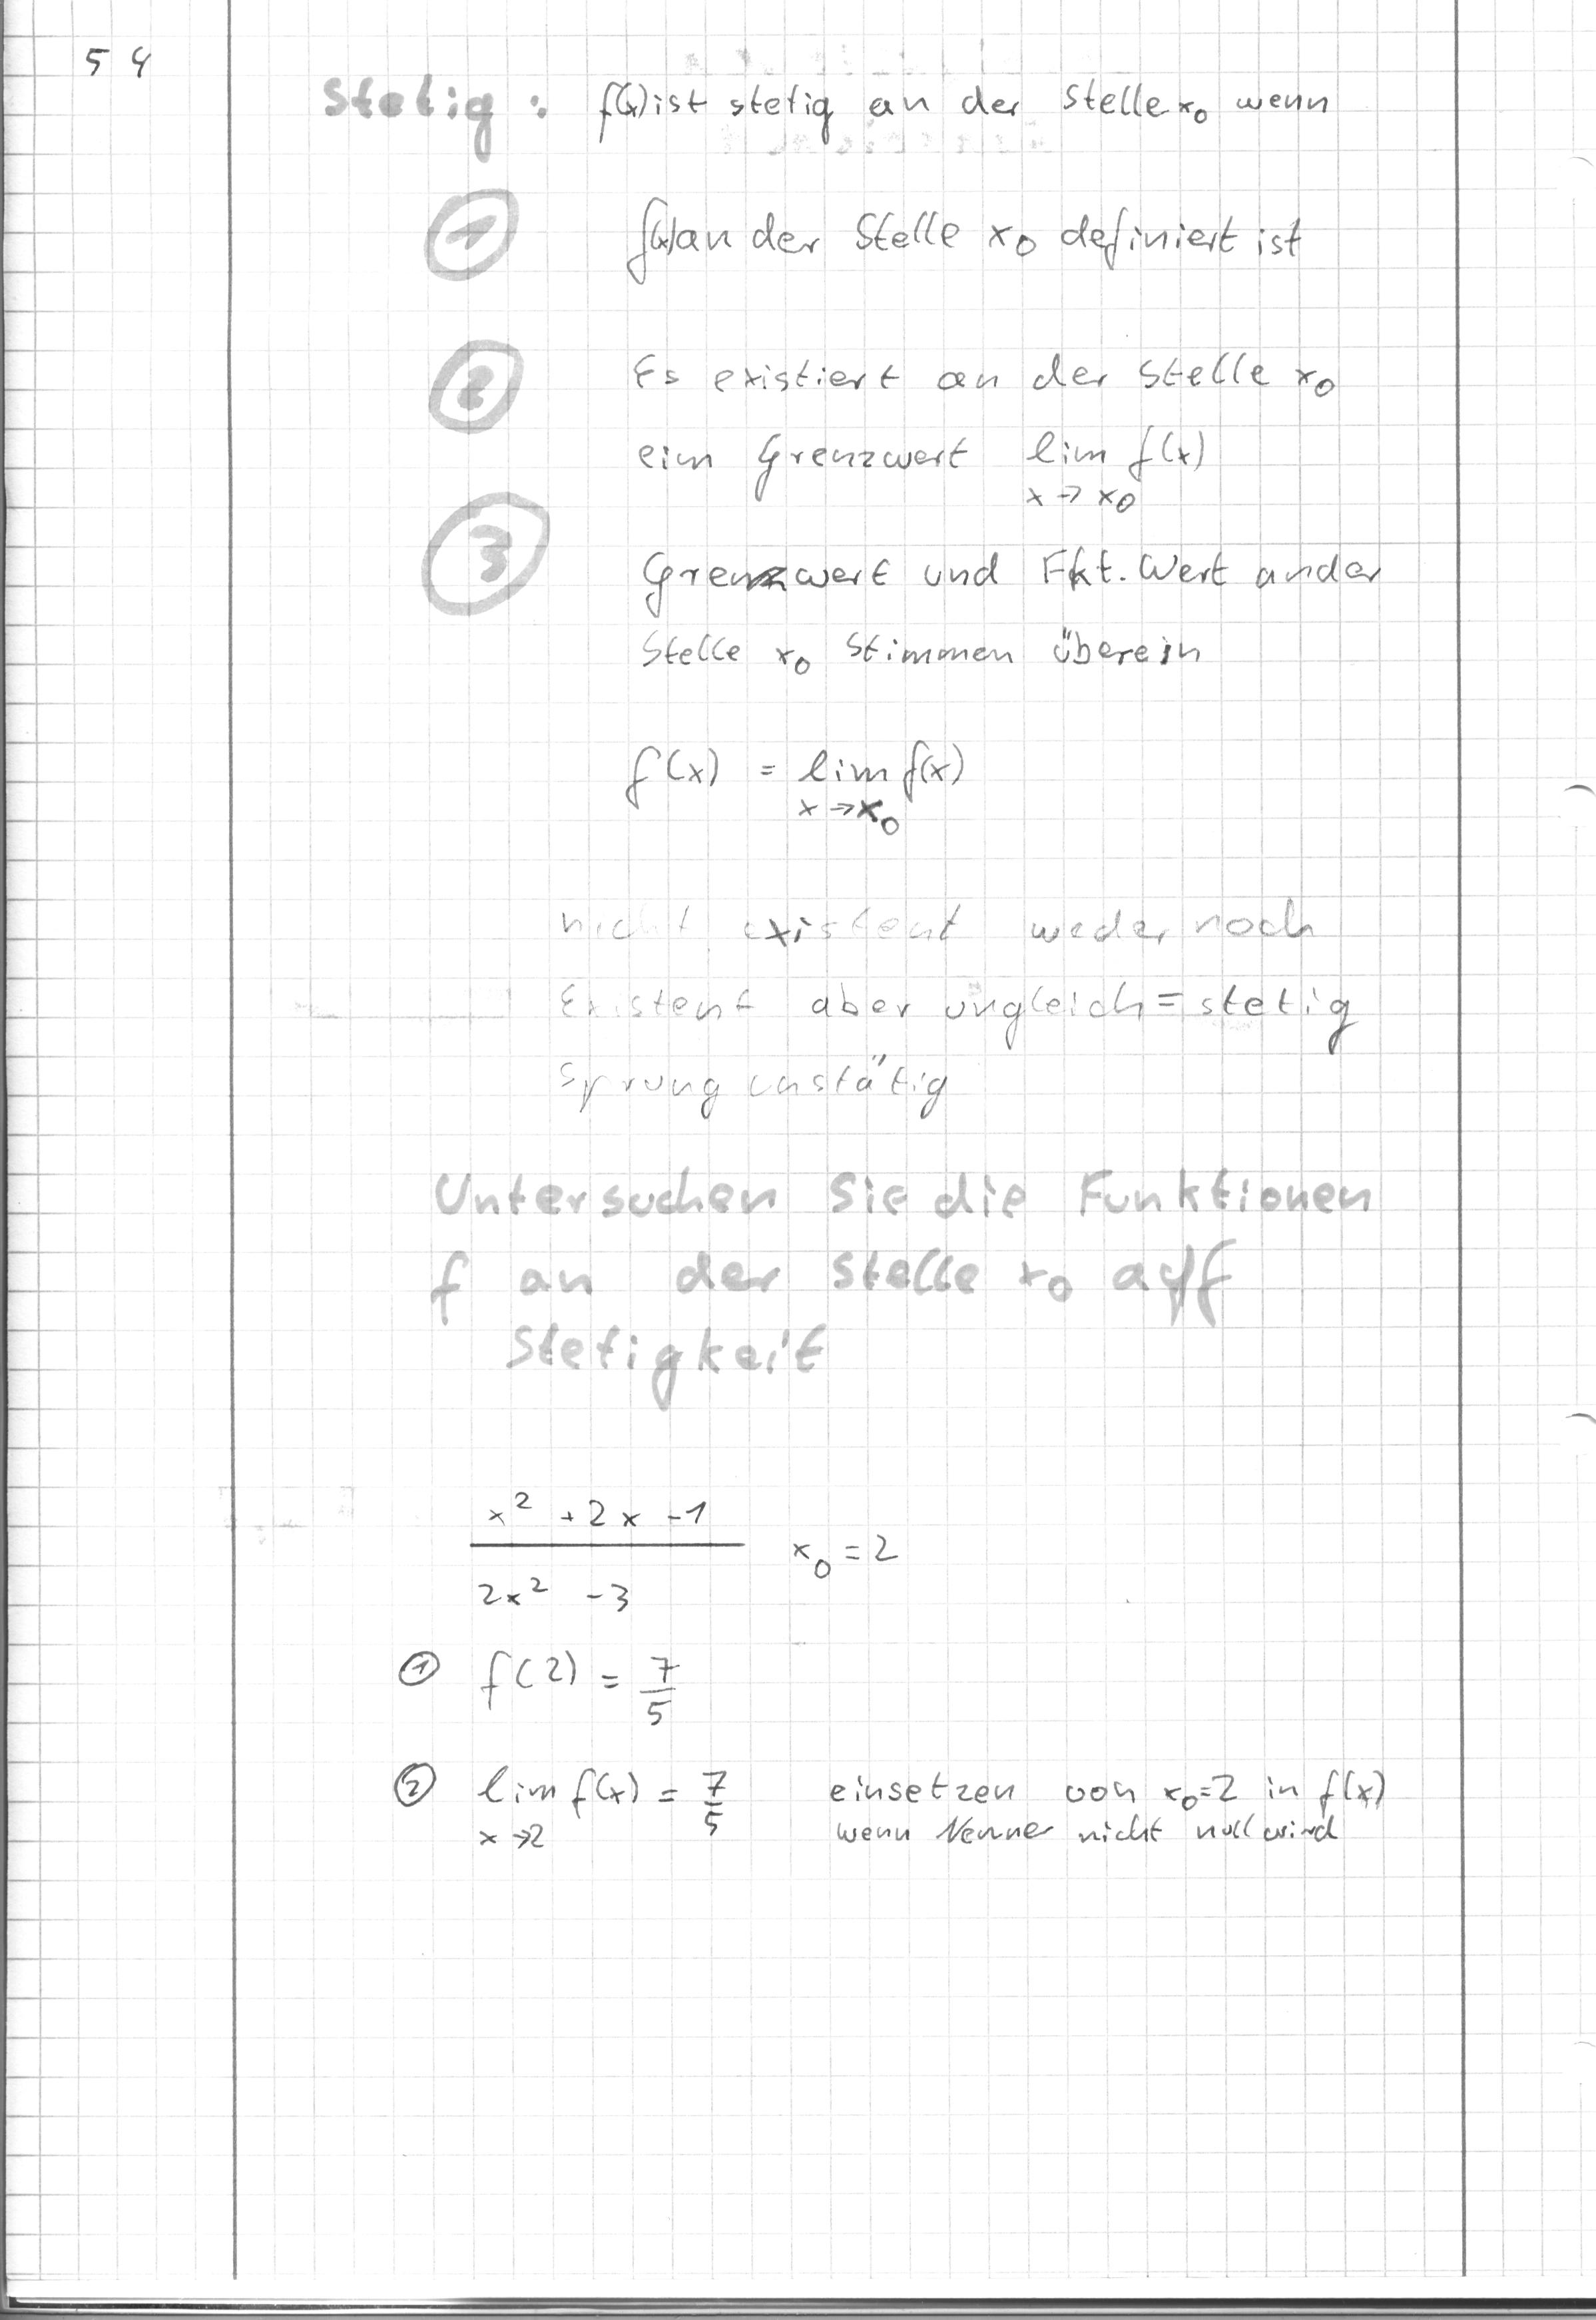 54
Stetig: f(x) ist stetig an der Stelle x₀ wenn
① f(x) an der Stelle x₀ definiert ist
② Es existiert an der Stelle x₀
ein Grenzwert lim f(x)
x → x₀
③ Grenzwert und Fkt. Wert an der
Stelle x₀ stimmen überein
f(x) = lim f(x)
x → x₀
nicht existent weder noch
Existent aber ungleich = stetig
Sprung unstätig
Untersuchen Sie die Funktionen
f an der Stelle x₀ auf
Stetigkeit
x² + 2x - 1
x₀ = 2
2x² - 3
① f(2) = 7/5
② lim f(x) = 7/5 einsetzen von x₀=2 in f(x)
x → 2 wenn Nenner nicht null wird